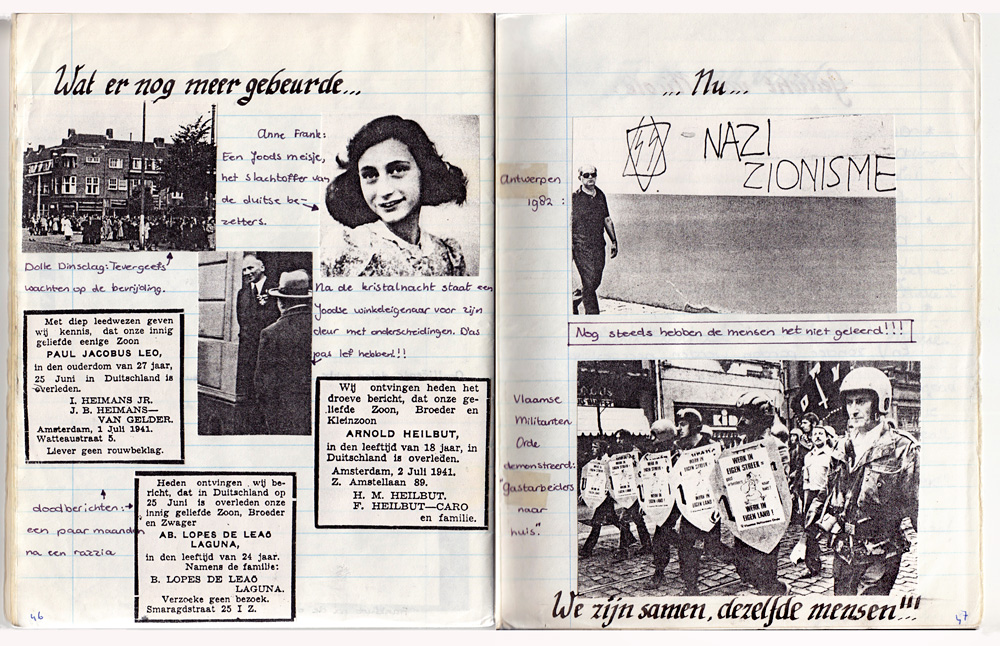 Wat er nog meer gebeurde...
Anne Frank:
Een Joods meisje,
het slachtoffer van
de duitse be-
zetters.
Dolle Dinsdag: Tevergeefs
wachten op de bevrijding.
Na de kristalnacht staat een
Joodse winkeleigenaar voor zijn
deur met onderscheidingen. Da's
pas lef hebben!!
Met diep leedwezen geven
wij kennis, dat onze innig
geliefde eenige Zoon
PAUL JACOBUS LEO,
in den ouderdom van 27 jaar,
25 Juni in Duitschland is
overleden.
I. HEIMANS JR.
J. B. HEIMANS—
VAN GELDER.
Amsterdam, 1 Juli 1941.
Watteaustraat 5.
Liever geen rouwbeklag.
Wij ontvingen heden het
droeve bericht, dat onze ge-
liefde Zoon, Broeder en
Kleinzoon
ARNOLD HEILBUT,
in den leeftijd van 18 jaar, in
Duitschland is overleden.
Amsterdam, 2 Juli 1941.
Z. Amstellaan 89.
H. M. HEILBUT.
F. HEILBUT—CARO
en familie.
doodberichten:
een paar maanden
na een razzia
Heden ontvingen wij be-
richt, dat in Duitschland op
25 Juni is overleden onze
innig geliefde Zoon, Broeder
en Zwager
AB. LOPES DE LEAO
LAGUNA,
in den leeftijd van 24 jaar.
Namens de familie:
B. LOPES DE LEAO
LAGUNA.
Verzoeke geen bezoek.
Smaragdstraat 25 I Z.
46
... Nu...
Antwerpen
1982:
NAZI
ZIONISME
Nog steeds hebben de mensen het niet geleerd!!!
Vlaamse
Militanten
Orde
demonstreerd:
"gastarbeiders
naar
huis".
WERK IN
EIGEN STREEK
WERK IN
EIGEN LAND!
We zijn samen, dezelfde mensen!!!
47